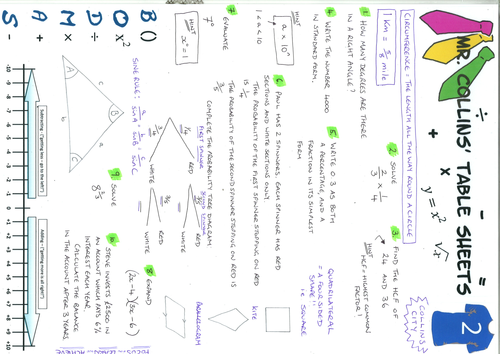 MR. COLLINS' TABLE SHEETS
÷ + - × =
y = x² √x
COLLINS CITY
2
CIRCUMFERENCE = THE LENGTH ALL THE WAY ROUND A CIRCLE
1 Km = 5/8 mile
1 HOW MANY DEGREES ARE THERE
IN A RIGHT ANGLE?
2 SOLVE
2/3 × 1/4
3 FIND THE HCF OF
24 AND 36
HINT
HCF = HIGHEST COMMON
FACTOR?
4 WRITE THE NUMBER 4000
IN STANDARD FORM.
HINT
a × 10ⁿ
1 < a < 10
5 WRITE 0.3 AS BOTH
A PERCENTAGE AND A
FRACTION IN ITS SIMPLEST
FORM
QUADRILATERAL
= A FOUR SIDED
SHAPE
i.e SQUARE
KITE
PARALLELOGRAM
6 PAUL HAS 2 SPINNERS, EACH SPINNER HAS RED
SECTIONS AND WHITE SECTIONS ONLY.
THE PROBABILITY OF THE FIRST SPINNER STOPPING ON RED
IS 1/4
THE PROBABILITY OF THE SECOND SPINNER STOPPING ON RED IS
3/5
COMPLETE THE PROBABILITY TREE DIAGRAM
FIRST SPINNER
SECOND SPINNER
1/4 RED
3/4 WHITE
3/5 RED
WHITE
3/5 RED
WHITE
7 EVALUATE
7⁰
HINT
x⁰ = 1
8 EXPAND
(2x-4)(3x-6)
9 SOLVE
8^2/3
10 STEVE INVESTS £2500 IN
AN ACCOUNT WHICH PAYS 6%
INTEREST EACH YEAR
CALCULATE THE BALANCE
IN THE ACCOUNT AFTER 3 YEARS
SINE RULE: a/sin A = b/sin B = c/sin C
A B C
a b c
B ()
O x²
D ÷
M ×
A +
S -
-10 -9 -8 -7 -6 -5 -4 -3 -2 -1 0 1 2 3 4 5 6 7 8 9 10